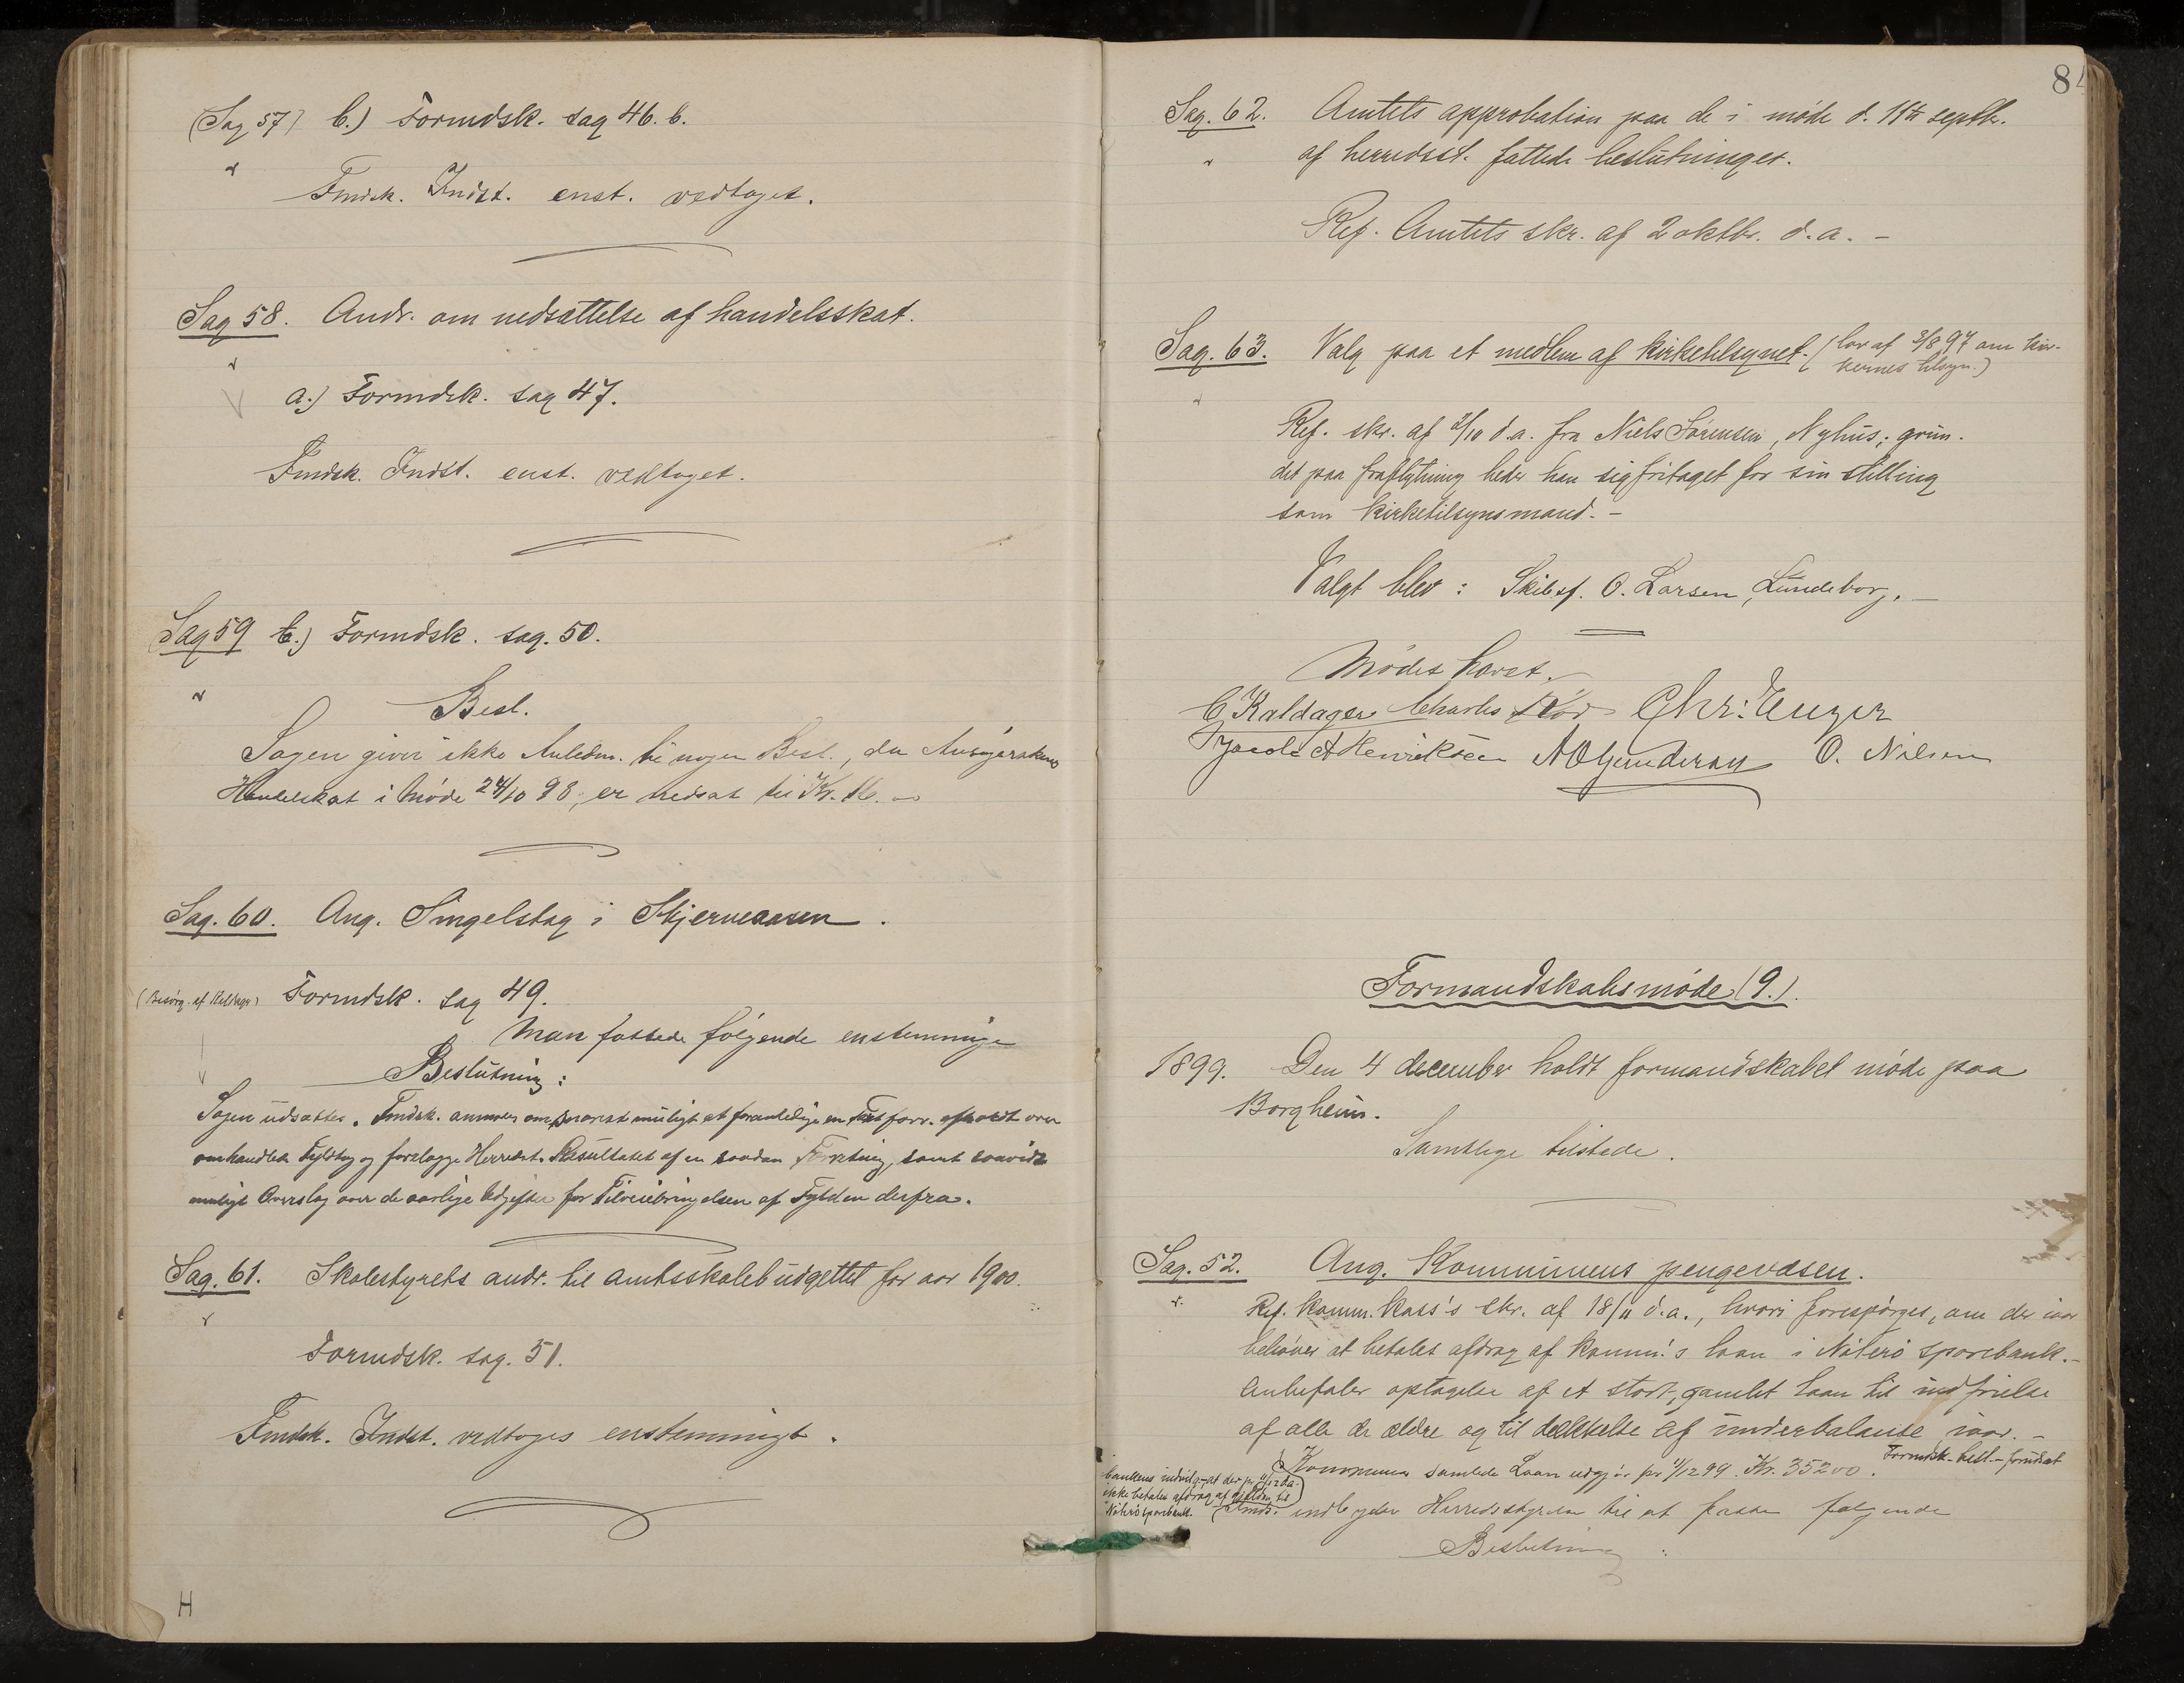 (Sag 57) b.) Formdsk. sag 46. b.
Fmdsk. Indst. enst. vedtaget.
Sag 58. Andr. om nedsættelse af handelsskat.
a.) Formdsk. sag 47.
Fmdsk. Indst. enst. vedtaget.
Sag 59 b.) Formdsk. sag. 50.
Besl.
Sagen giver ikke Anledn. til nogen Besl., da Ansøgerskens
Handelskat i Møde 24/10 98, er nedsat til Kr.
Sag. 60. Ang. Singelstag i Skjerveaasen.
(Besørg. af Kaldager) Formdsk. sag 49.
Man fattede følgende enstemmige
Beslutning:
Sagen udsættes. Fmdsk. anmodes om snarest muligt at foranledige en forr. afholdt over
omhandlede Fyldtag og forelægge Herredst. Resultatet af en saadan Forretning, samt saavidt
muligt Overslag over de aarlige Udgifter for Tilveiebringelsen af Fylden derfra.
Sag. 61. Skolestyrets andr. til amtsskolebudgettet for aar 1900.
Formdsk. sag. 51.
Fmdsk. Indst. vedtoges enstemmigt.
H
84
Sag. 62. Amtets approbation paa de i møde d. 11te septbr.
af herredsst. fattede beslutninger.
Ref. Amtets skr. af 2 oktbr. d.a. -
Sag. 63. Valg paa et medlem af kirketilsynet. (lov af 3/8 97 om kir-
kernes tilsyn.)
Ref. skr. af /10 d.a. fra Niels Sørensen, Nyhus; grun-
det paa fraflytning beder han sig fritaget for sin stilling
som kirketilsynsmand. -
Valgt blev: Skibsf. O. Larsen, Lundeborg. -
Mødet hævet.
C. Kaldager Charles Chr: Unger
Jacob A Henriksen A O Gundersen O. Nilsen
Formandskabsmøde (9.).
1899. Den 4 december holdt formandskabet møde paa
Borgheim.
Samtlige tilstede.
Sag. 52. Ang. Kommunens pengevæsen.
Ref. komm. kass's skr. af 18/11 d.a., hvori forespørges, om der iaar
behøver at betales afdrag af komm's laan i Nøterø sparebank. -
Anbefaler optagelse af et stort, samlet laan til indfrielse
af alle de ældre og til dækkelse af underbalanse iaar. -
Kommunens samlede Laan udgjør pr 1/12 99. Kr. 35200. Formdsk. besl. - forudsat
bankens indvilg. - at der pr 11/12 d.a.
ikke betales afdrag af gjælden til
Nøterø sparebank. Fmds. indbyder Herredsstyrelsen til at fatte følgende
Beslutning: